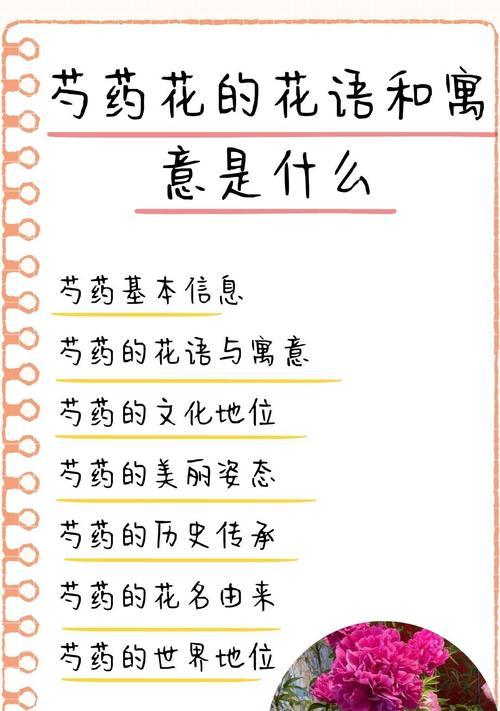 芍药花的花语和寓
意是什么
芍药基本信息
芍药的花语与寓意
芍药的文化地位
芍药的美丽姿态
芍药的历史传承
芍药的花名由来
芍药的世界地位